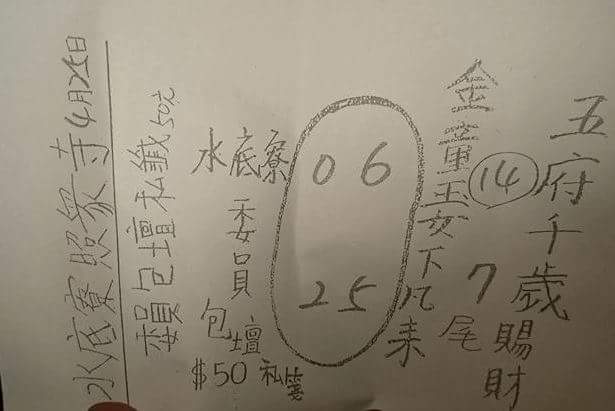 五府千歲賜財
14
7尾
金童玉女下凡来
06
25
水底寮
委員
包壇
$50 私籤
類包壇私籤50元
水底寮照象寺4月25日